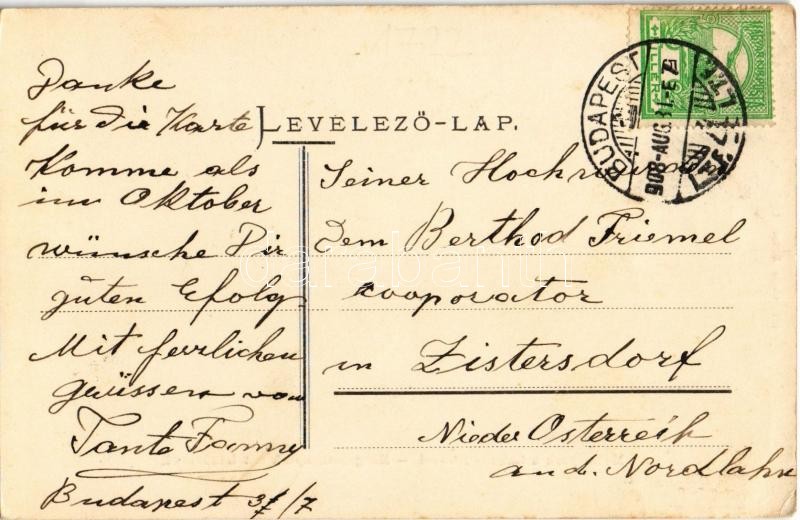 Danke
für die Karte
Komme als
im Oktober
wünsche Dir
guten Efolg
Mit ferrlichen
grüssen von
Tante Fanny
Budapest 31/7
LEVELEZŐ-LAP.
Seiner Hochwürden
Dem Berthod Friemel
cooporator
in Zistersdorf
Nieder Österreich
an d. Nordbahn
BUDAPEST
908-AUG.
FILLER
darabanth